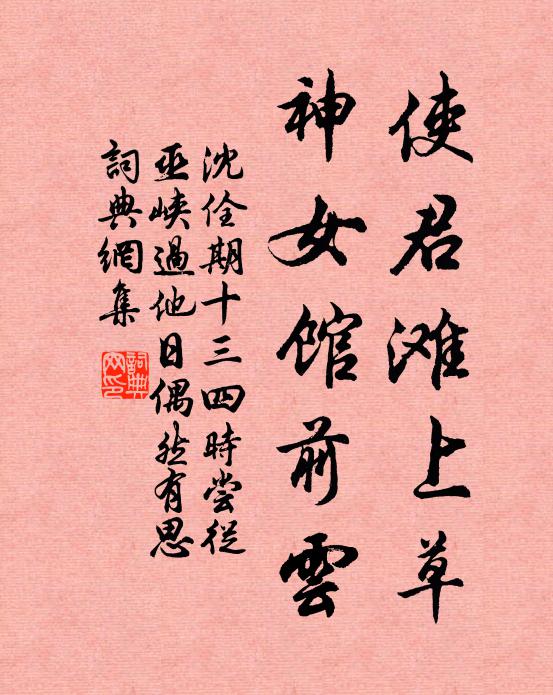 使君滩上草
神女馆前雲
沈佺期十三四時嘗從
巫峡過他日偶然有思
詞典網集
詞典网印